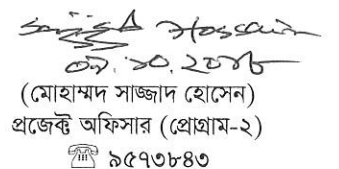 Sajjad Hossain
(মোহাম্মদ সাজ্জাদ হোসেন)
প্রজেক্ট অফিসার (প্রোগ্রাম-২)
☏ ৯৫৭৩৮৪৩